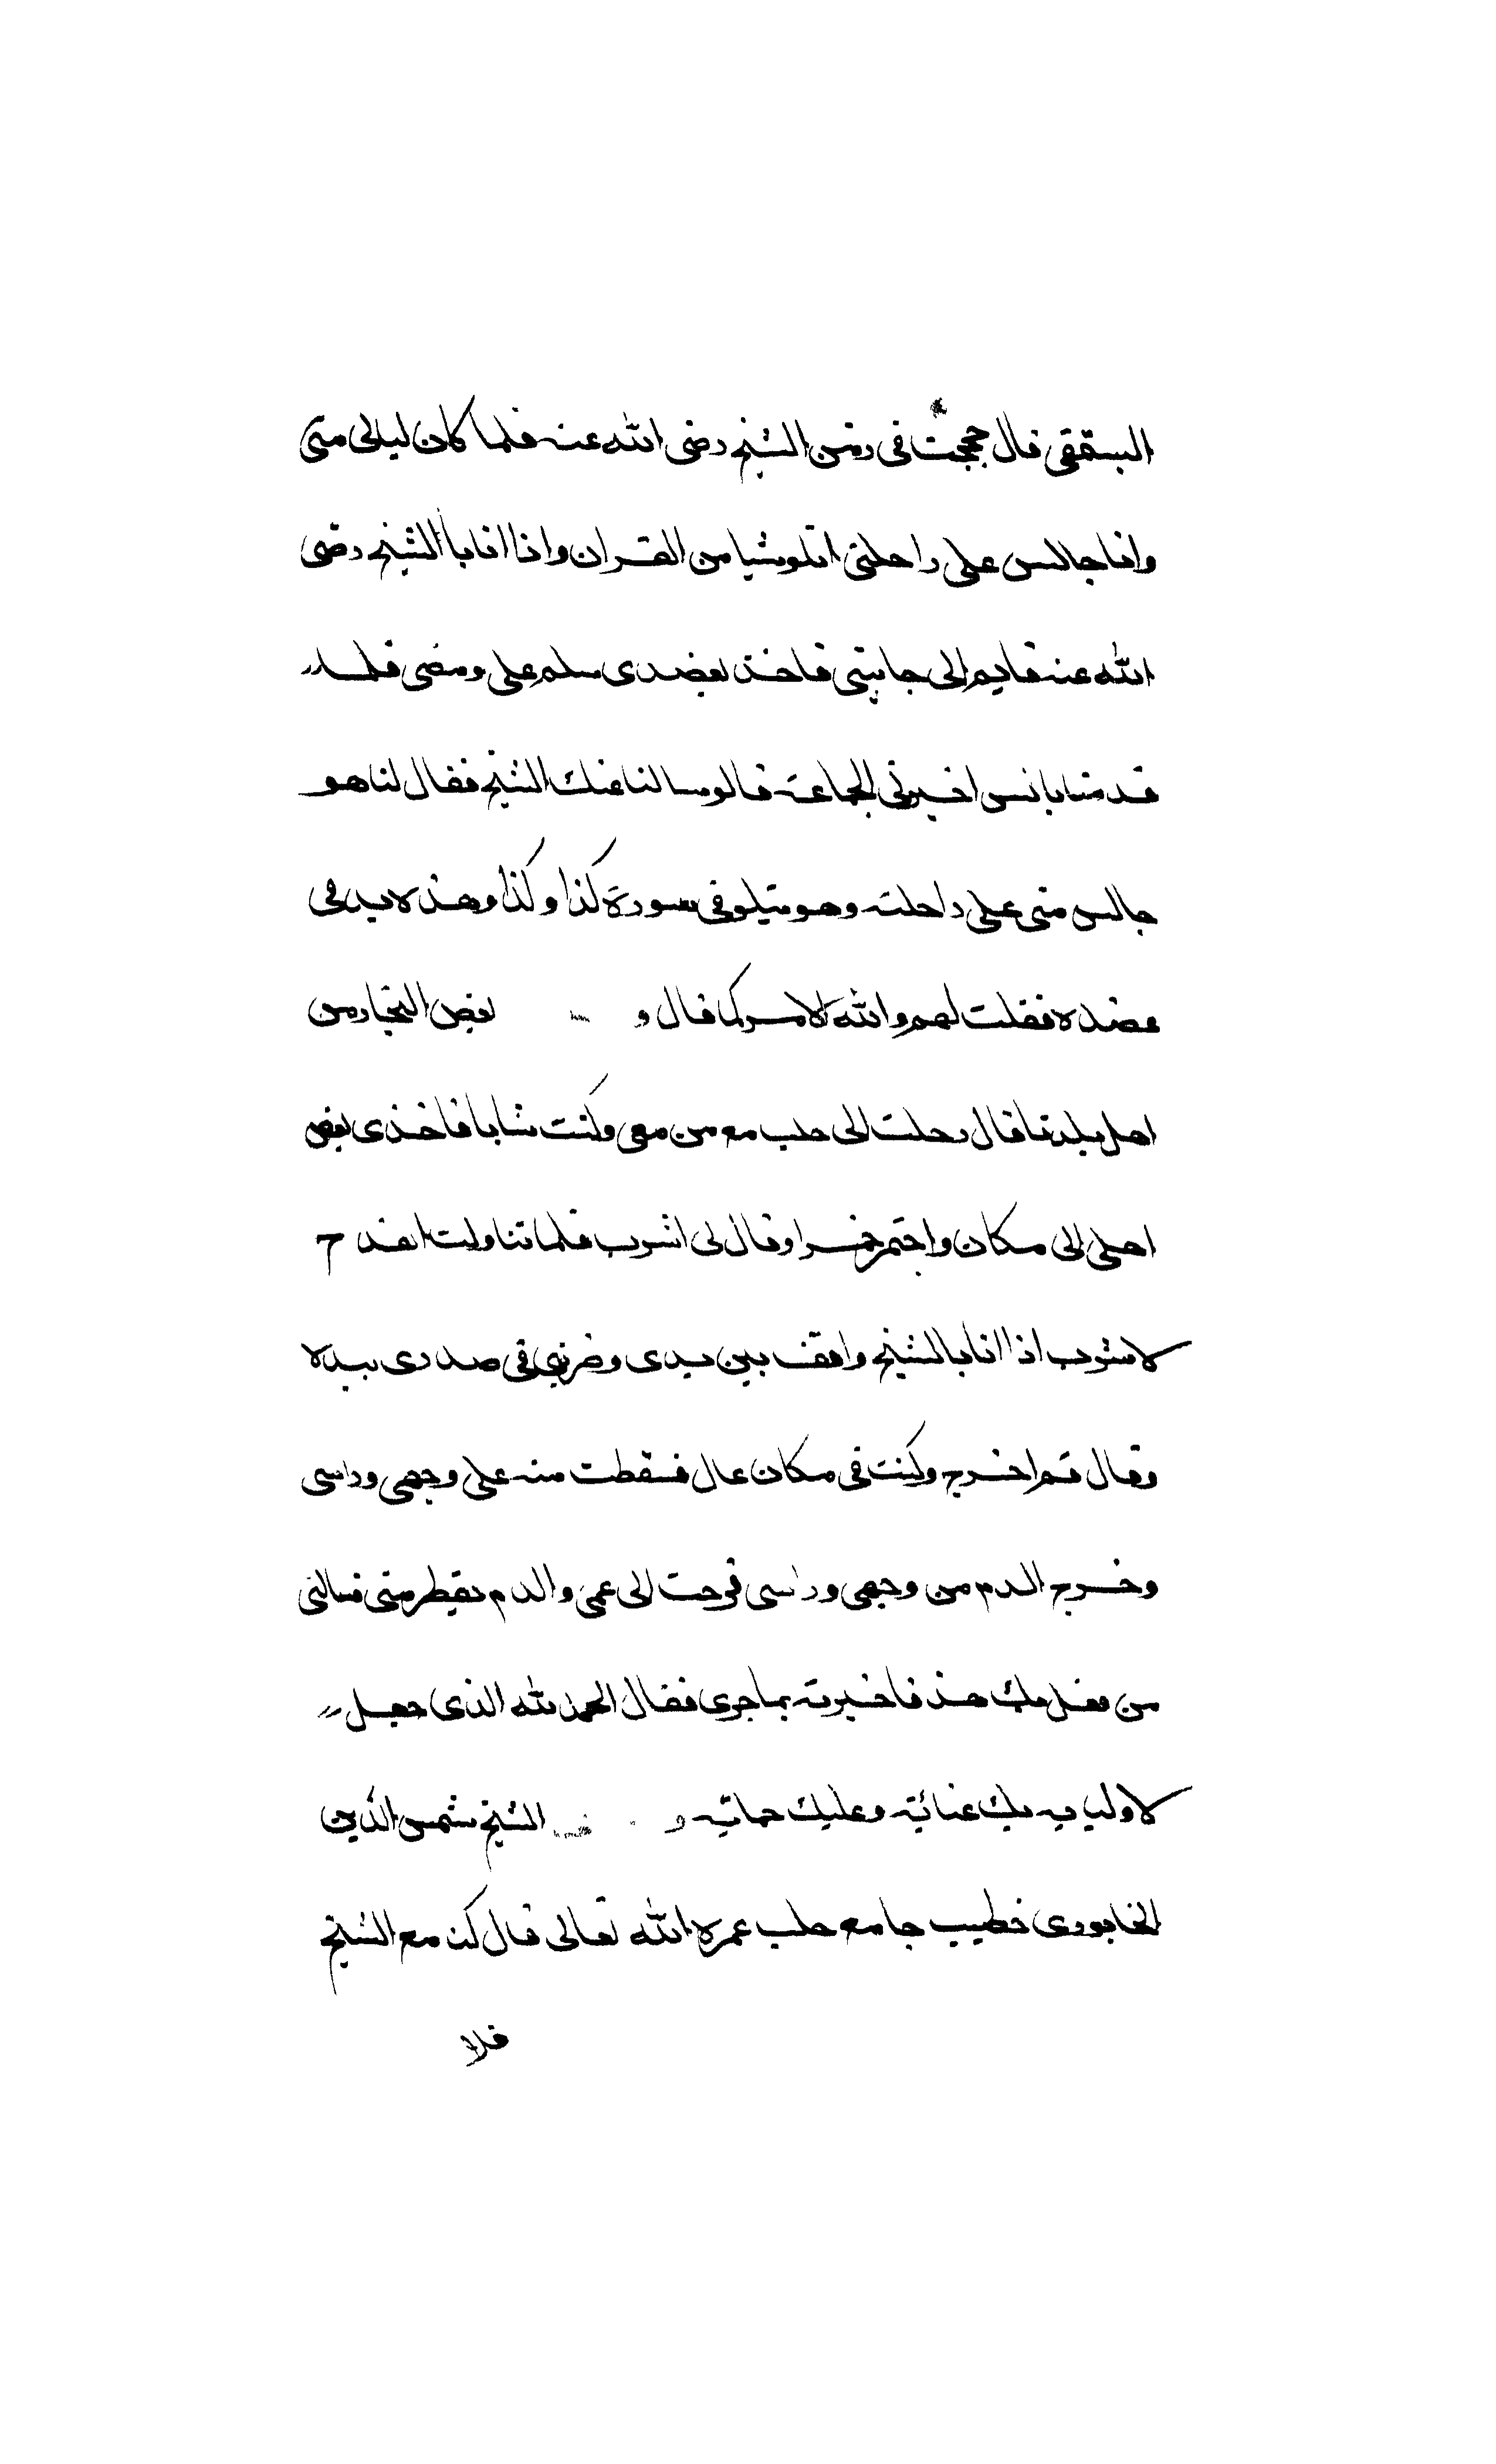 البستقى قال حججت فى زمن الشيخ رضى الله عنه فلما كان ليالى منى
وانا جالس على راحلتى اتلو شيا من القران واذا انا بالشيخ رضى
الله عنه قايم الى جانبى فاخذ بعضدى سلم على ومضى فلما
قدمنا بانس اخبرنى الجماعة قالو سالنا عنك الشيخ فقال لنا هو
جالس منى على راحلته وهو يتلو فى سورة كذا وكذا وهذه يدى فى
عضده فقلت لهم والله الامر كما قال و بعض التجار من
اهل بلدنا قال رحلت الى حلب مع من معى وكنت شابا فاخذى بعض
اهلى الى مكان واحضر خمرا وقال لى اشرب فلما تناولت القدح
لاشرب اذا انا بالشيخ واقف بين يدى وضربنى فى صدرى بيده
وقال قم اخرج وكنت فى مكان عال فسقطت منه على وجهى وراسى
وخرج الدم من وجهى وراسى فرحت الى عمى والدم يقطر منى فسالنى
من فعل بك هذ فاخبرته بما جرى فقال الحمد لله الذى جعل
لاوليايه بك عنائية وعليك حماية و الشيخ شمس الدين
الخابورى خطيب جامع حلب عمره الله تعالى قال كنت مع الشيخ